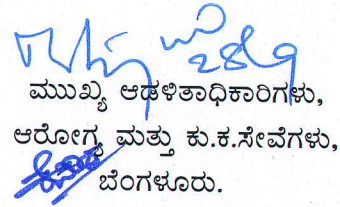 28/9
ಮುಖ್ಯ ಆಡಳಿತಾಧಿಕಾರಿಗಳು,
ಆರೋಗ್ಯ ಮತ್ತು ಕು.ಕ.ಸೇವೆಗಳು,
ಬೆಂಗಳೂರು.